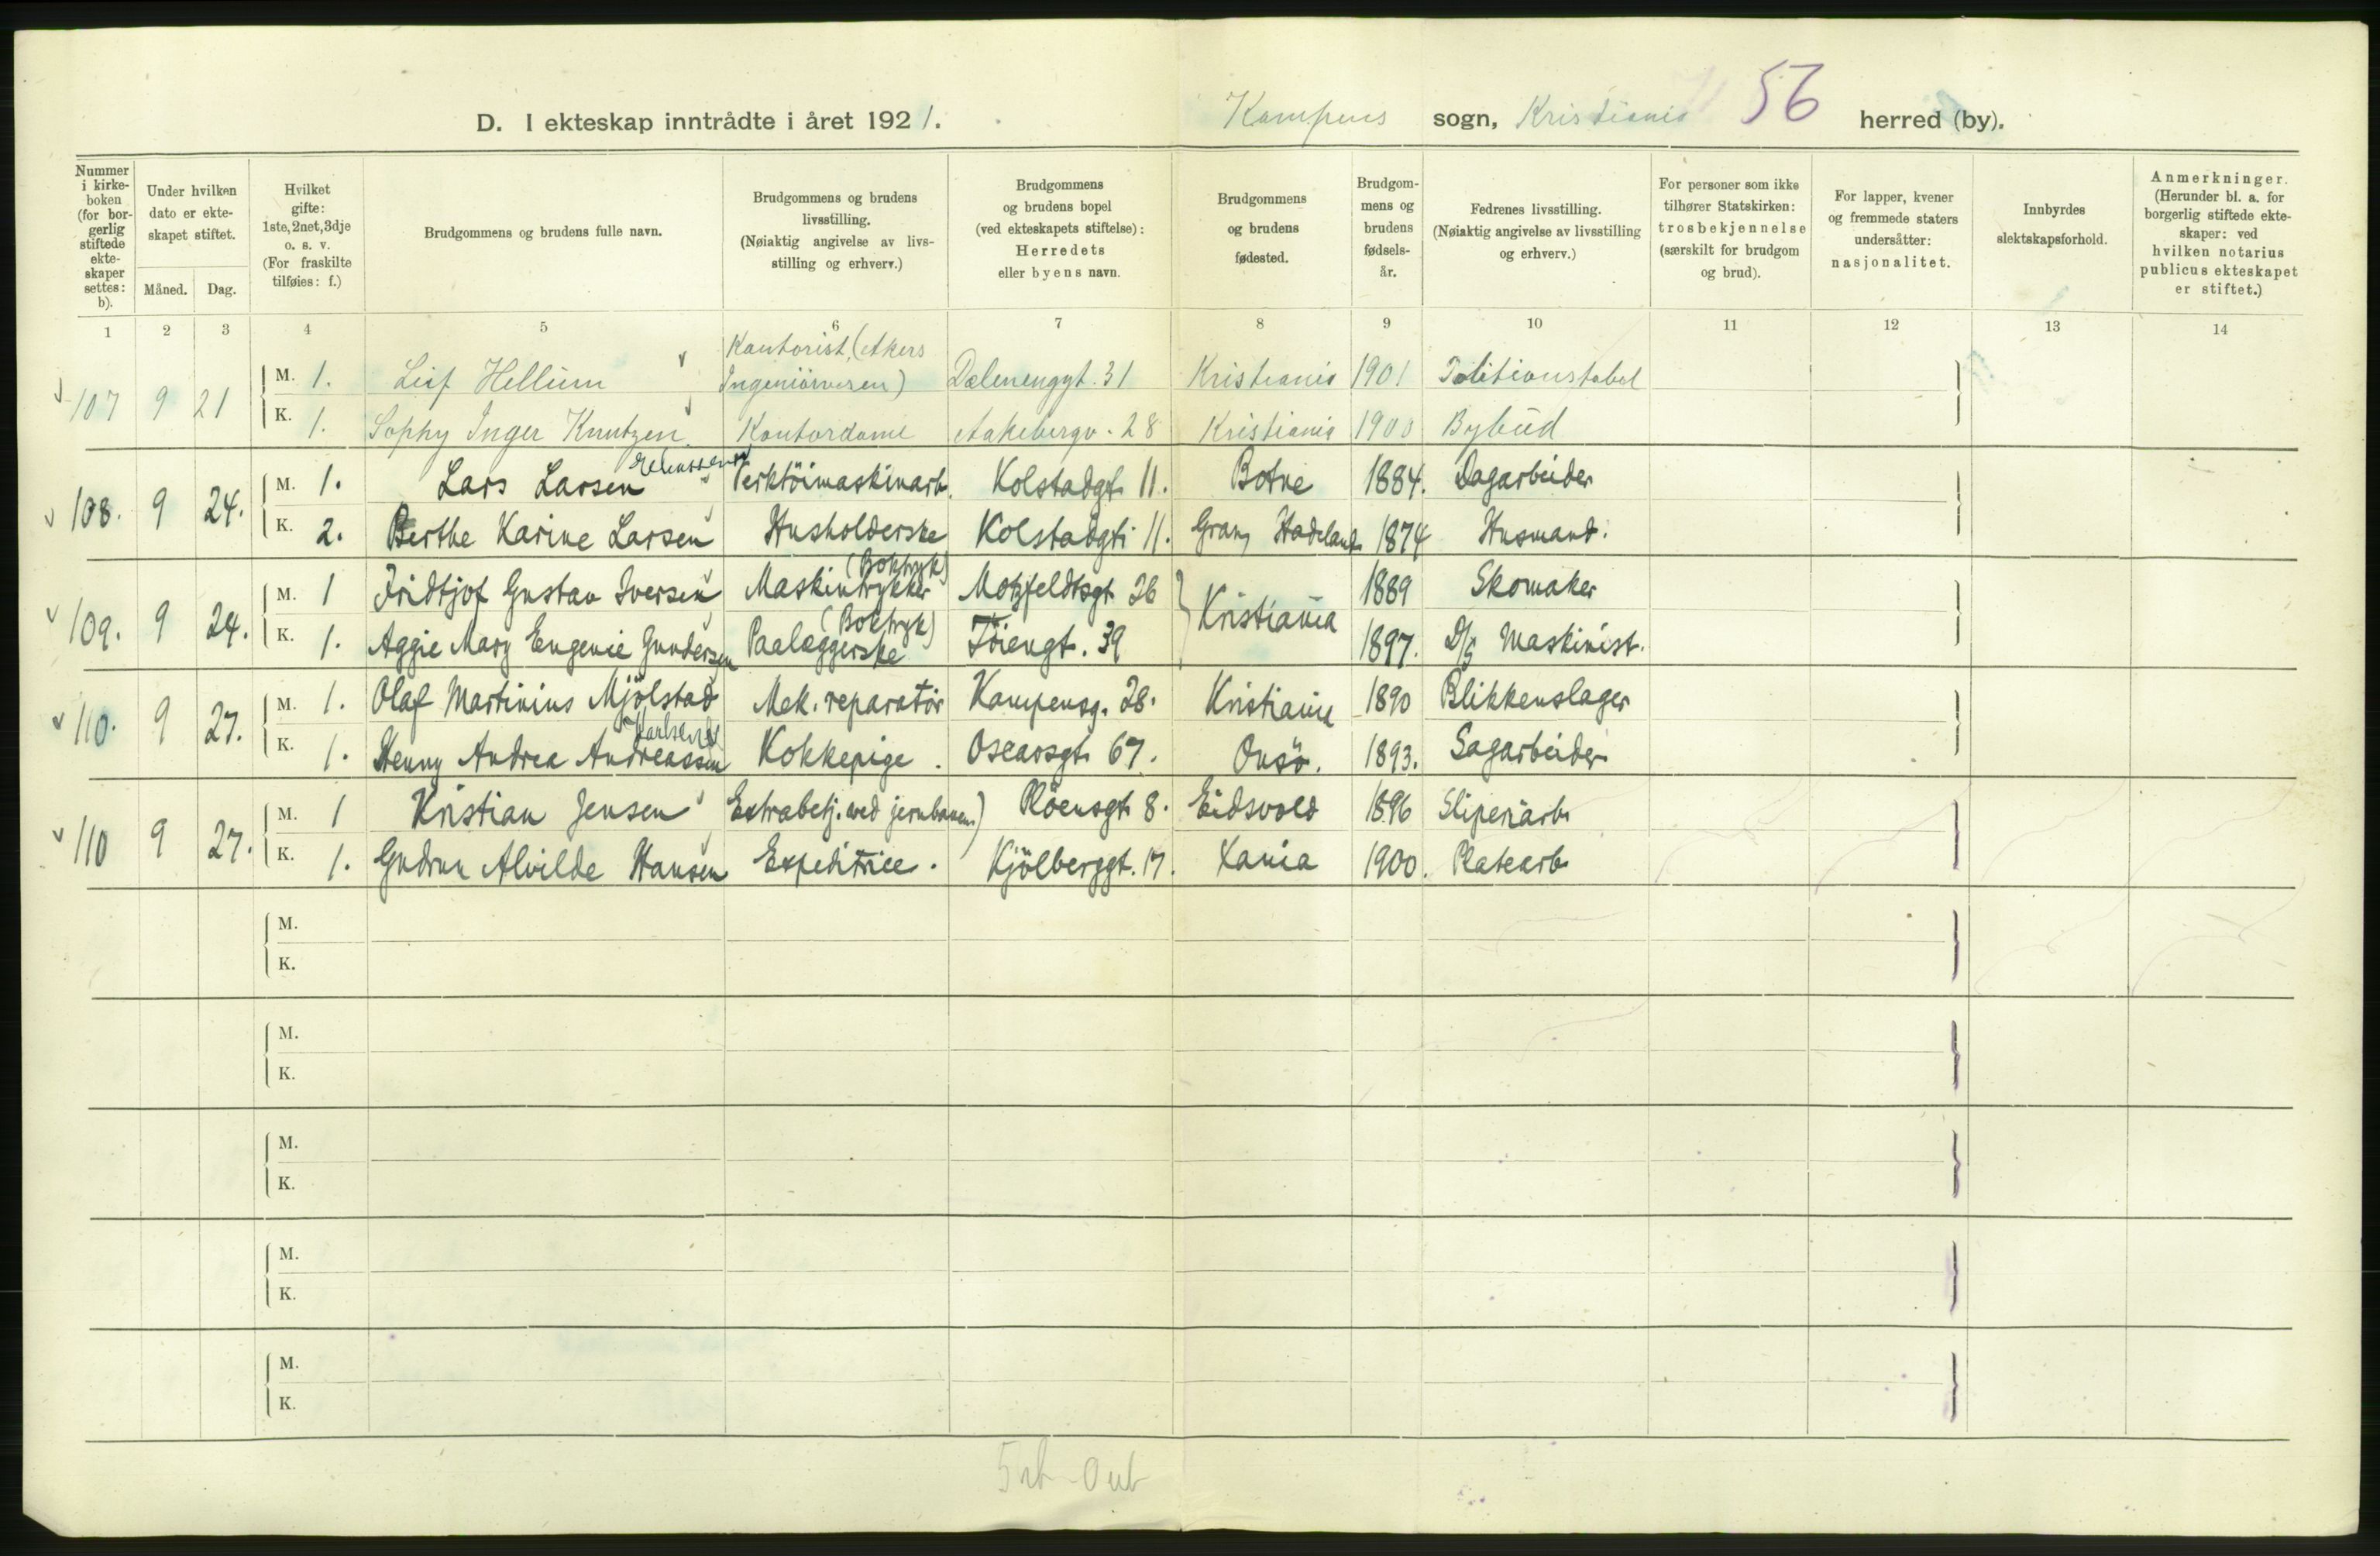 D. I ekteskap inntrådte i året 1921. Kampens sogn, Kristiania 56 herred (by).
Nummer i kirkeboken (for borgerlig stiftede ekteskaper settes: b).
Under hvilken dato er ekteskapet stiftet.
Måned. Dag.
Hvilket gifte: 1ste, 2net, 3dje o. s. v. (For fraskilte tilføies: f.)
Brudgommens og brudens fulle navn.
Brudgommens og brudens livsstilling. (Nøiaktig angivelse av livsstilling og erhverv.)
Brudgommens og brudens bopel (ved ekteskapets stiftelse): Herredets eller byens navn.
Brudgommens og brudens fødested.
Brudgommens og brudens fødselsår.
Fedrenes livsstilling. (Nøiaktig angivelse av livsstilling og erhverv.)
For personer som ikke tilhører Statskirken: trosbekjennelse (særskilt for brudgom og brud).
For lapper, kvener og fremmede staters undersåtter: nasjonalitet.
Innbyrdes slektskapsforhold.
Anmerkninger. (Herunder bl. a. for borgerlig stiftede ekteskaper: ved hvilken notarius publicus ekteskapet er stiftet.)
1 2 3 4 5 6 7 8 9 10 11 12 13 14
Kontorist, (Akers
107 9 21 M. 1. Leif Hellum Ingeniörvesen) Dælenenggt. 31 Kristiania 1901
K. 1. Sophy Inger Knutzen. Kontordame Aakebergv. 28 Kristiania 1900 Bybud
108. 9 24. M. 1. Lars Larsen Verktöimaskinarb. Kolstadgt. 11. Botne 1884. Dagarbeider
K. 2. Berthe Karine Larsen Husholderske Kolstadgt. 11. Gran, Hadeland 1874 Husmand.
(Boktryk)
109. 9 24. M. 1 Fridtjof Gustav Iversen Maskintrykker Motzfeldtsgt. 26 Kristiania 1889 Skomaker
(Boktryk)
K. 1. Aggie Mary Eugenie Gundersen Paalæggerske Töiengt. 39 1897. D/S Maskinist.
110. 9 27. M. 1. Olaf Martinius Mjölstad Mek. reparatör Kampensg. 28. Kristiania 1890 Blikkenslager
Karlsen
K. 1. Henny Andrea Andreassen Kokkepige. Oscarsgt. 67. Onsö. 1893. Sagarbeider
110 9 27. M. 1 Kristian Jensen Extrabetj. ved jernbanen) Plöensgt. 8. Eidsvold 1896 Sliperiarb.
K. 1. Gudrun Alvilde Hansen Expeditrice. Kjölberggt. 17. Xania 1900. Platearb.
M.
K.
M.
K.
M.
K.
M.
K.
M.
K.